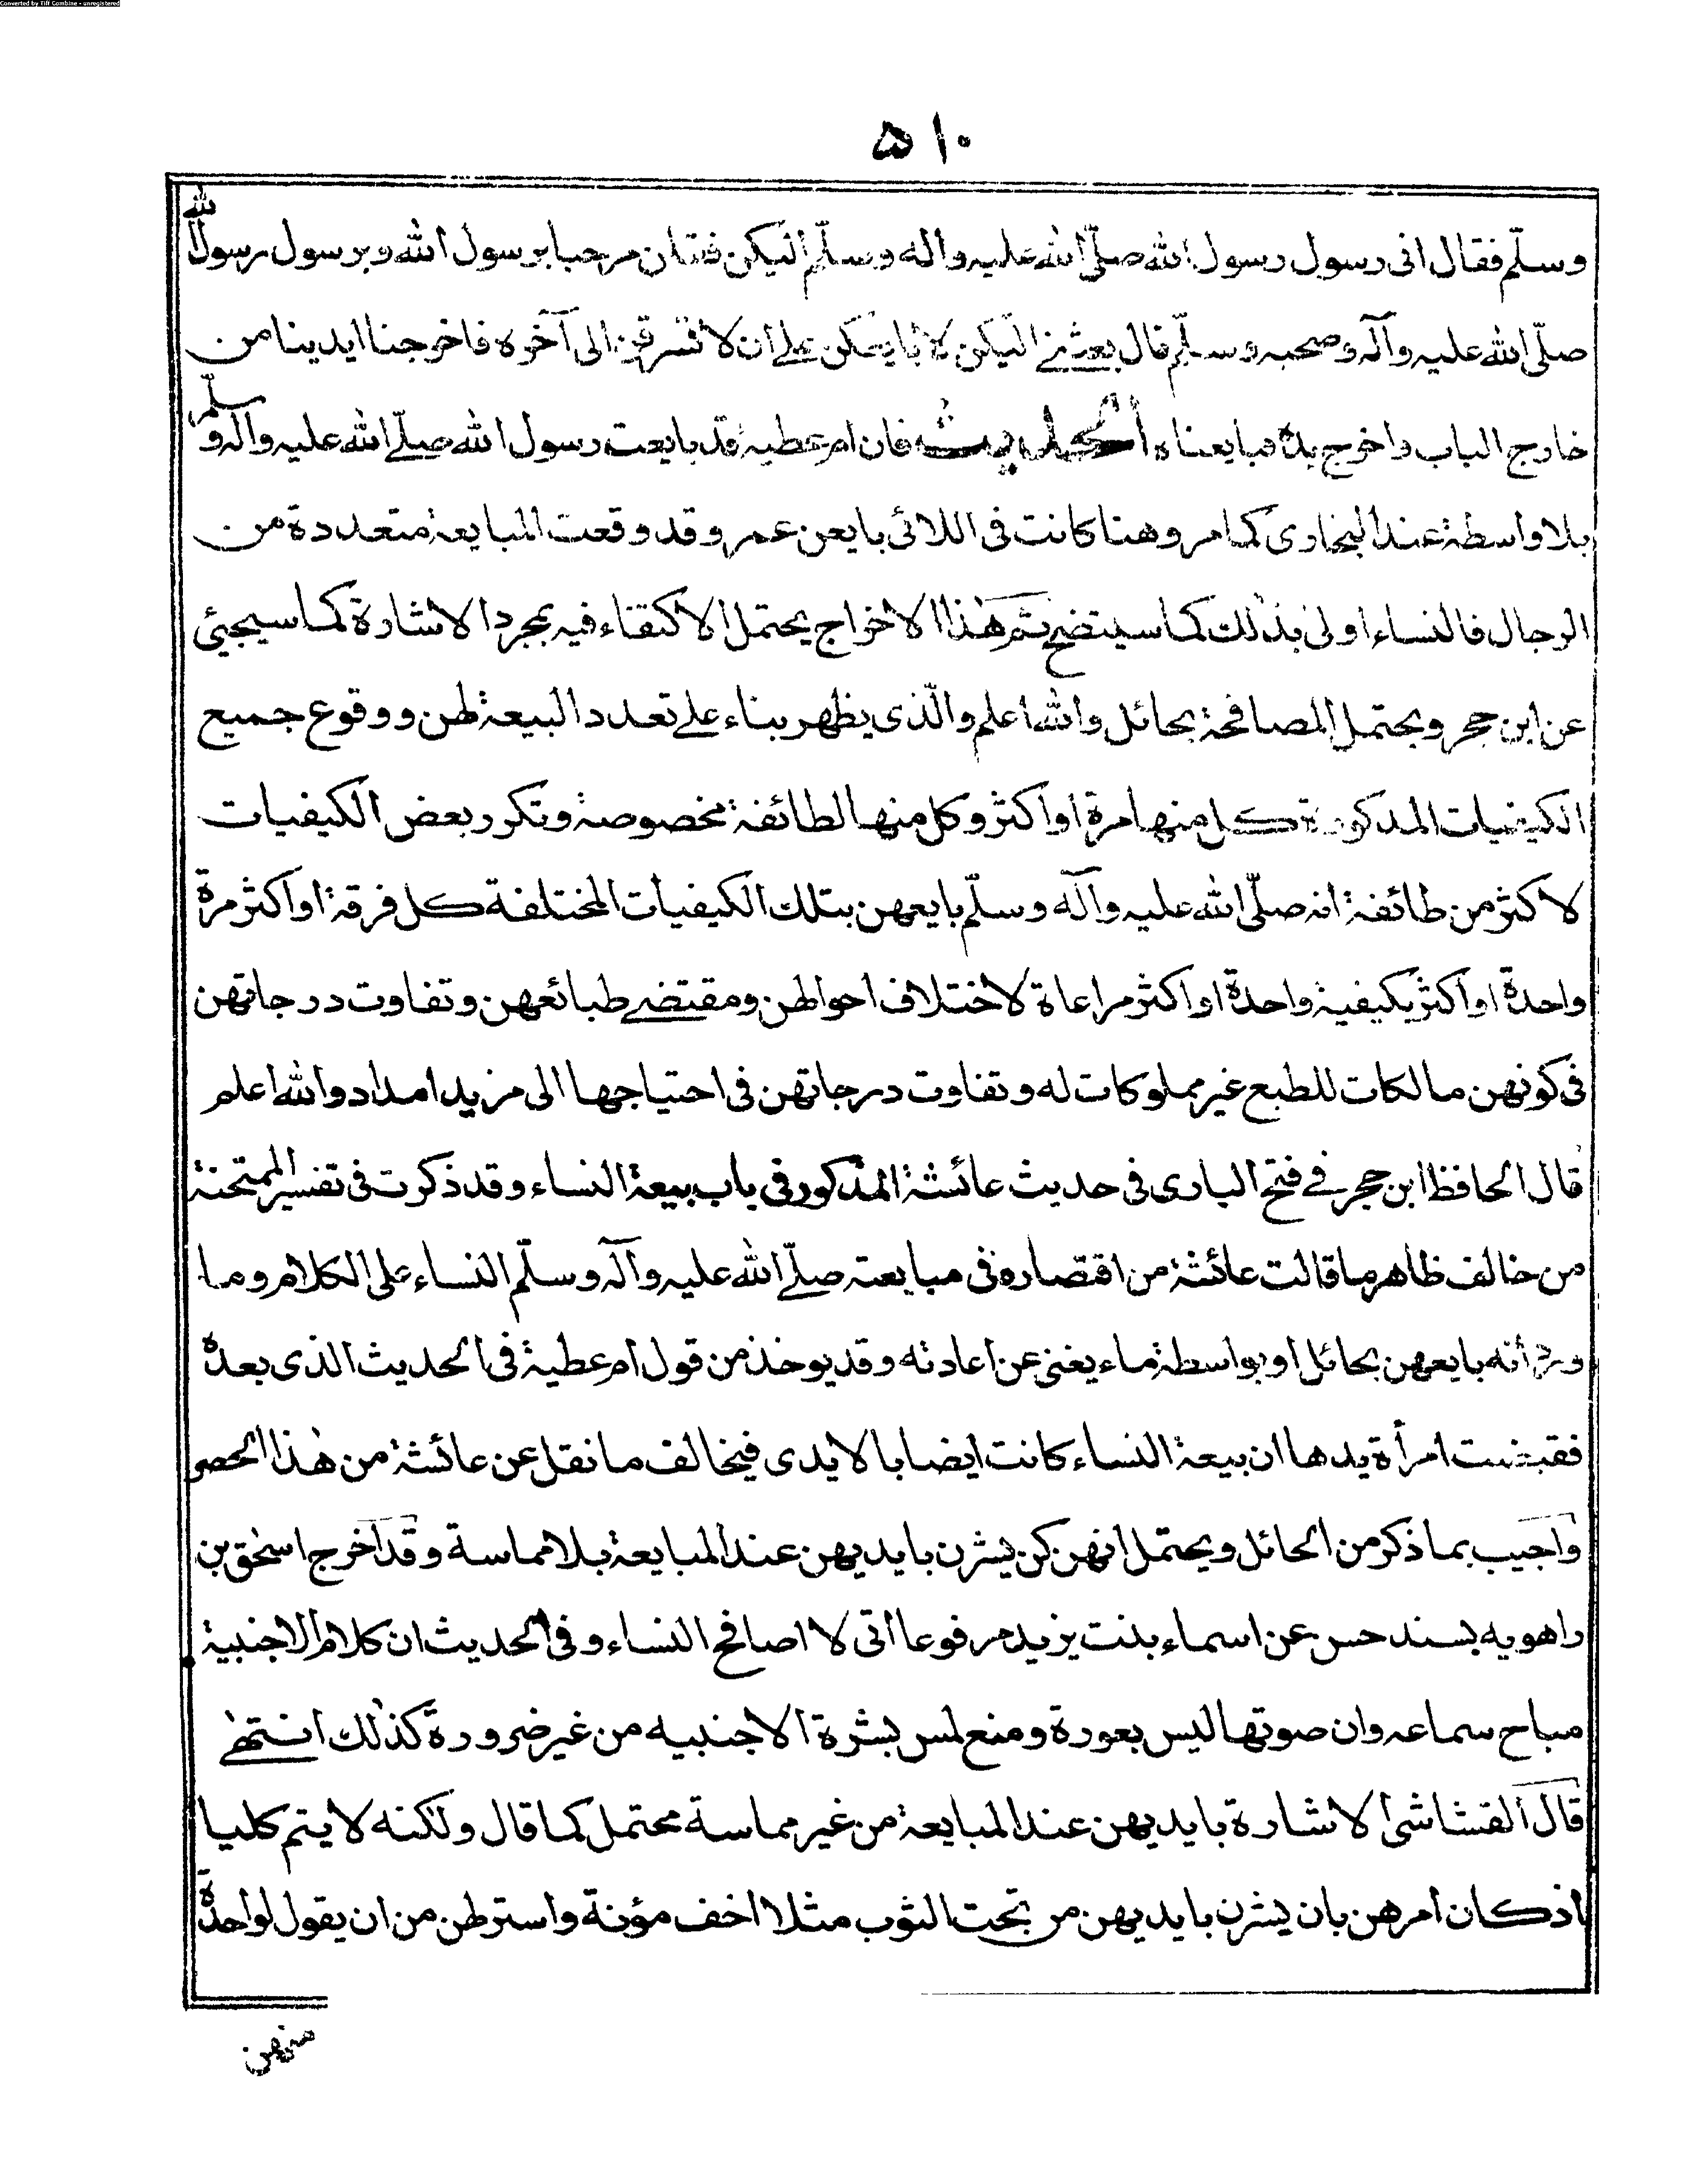 Converted by Tiff Combine - unregistered
۵۱۰
وسلّم فقال انى رسول رسول الله صلّى الله عليه واله وسلّم اليكن فقلن مرحبا برسول الله وبرسول رسول الله
صلّى الله عليه وآله وصحبه وسلّم قال بعثنى اليكن لابايعكن على ان لا تسرقن الى آخره فاخرجنا ايدينا من
خارج الباب واخرج يده فبايعناه الحديث فان ام عطية قد بايعت رسول الله صلّى الله عليه واله وسلّم
بلا واسطة عند البخارى كما مر وهنا كانت فى اللائى بايعن عمر وقد وقعت المبايعة متعددة من
الرجال فالنساء اولى بذلك كما سيتضح ثم هذا الاخراج يحتمل الاكتفاء فيه بمجرد الاشارة كما سيجيئ
عن ابن حجر ويحتمل المصافحة بحائل والله اعلم والّذى يظهر بناء على تعدد البيعة لهن ووقوع جميع
الكيفيات المذكورة كل منها مرة او اكثر وكل منها لطائفة مخصوصة وتكرر بعض الكيفيات
لاكثر من طائفة انه صلّى الله عليه وآله وسلّم بايعهن بتلك الكيفيات المختلفة كل فرقة او اكثر مرة
واحدة او اكثر بكيفية واحدة او اكثر مراعاة لاختلاف احوالهن ومقتضى طبائعهن وتفاوت درجاتهن
فى كونهن مالكات للطبع غير مملوكات له وتفاوت درجاتهن فى احتياجها الى مزيد امداد والله اعلم
قال الحافظ ابن حجر فى فتح البارى فى حديث عائشة المذكور فى باب بيعة النساء وقد ذكرت فى تفسير الممتحنة
من خالف ظاهر ما قالت عائشة من اقتصاره فى مبايعته صلّى الله عليه وآله وسلّم النساء على الكلام وما
ورد انه بايعهن بحائل او بواسطة ماء يغنى عن اعادته وقد يوخذ من قول ام عطية فى الحديث الذى بعده
فقبضت امرأة يدها ان بيعة النساء كانت ايضا بالايدى فيخالف ما نقل عن عائشة من هذا الحصر
واجيب بما ذكر من الحائل ويحتمل انهن كن يشرن بايديهن عند المبايعة بلا مماسة وقد اخرج اسحق بن
راهويه بسند حسن عن اسماء بنت يزيد مرفوعا انى لا اصافح النساء وفى الحديث ان كلام الاجنبية
مباح سماعه وان صوتها ليس بعورة ومنع لمس بشرة الاجنبيه من غير ضرورة كذلك انتهى
قال القشاشى الاشارة بايديهن عند المبايعة من غير مماسة محتمل كما قال ولكنه لا يتم كليا
اذ كان امرهن بان يشرن بايديهن من تحت الثوب مثلا اخف مؤنة واستر لهن من ان يقول لواحدة
منهن